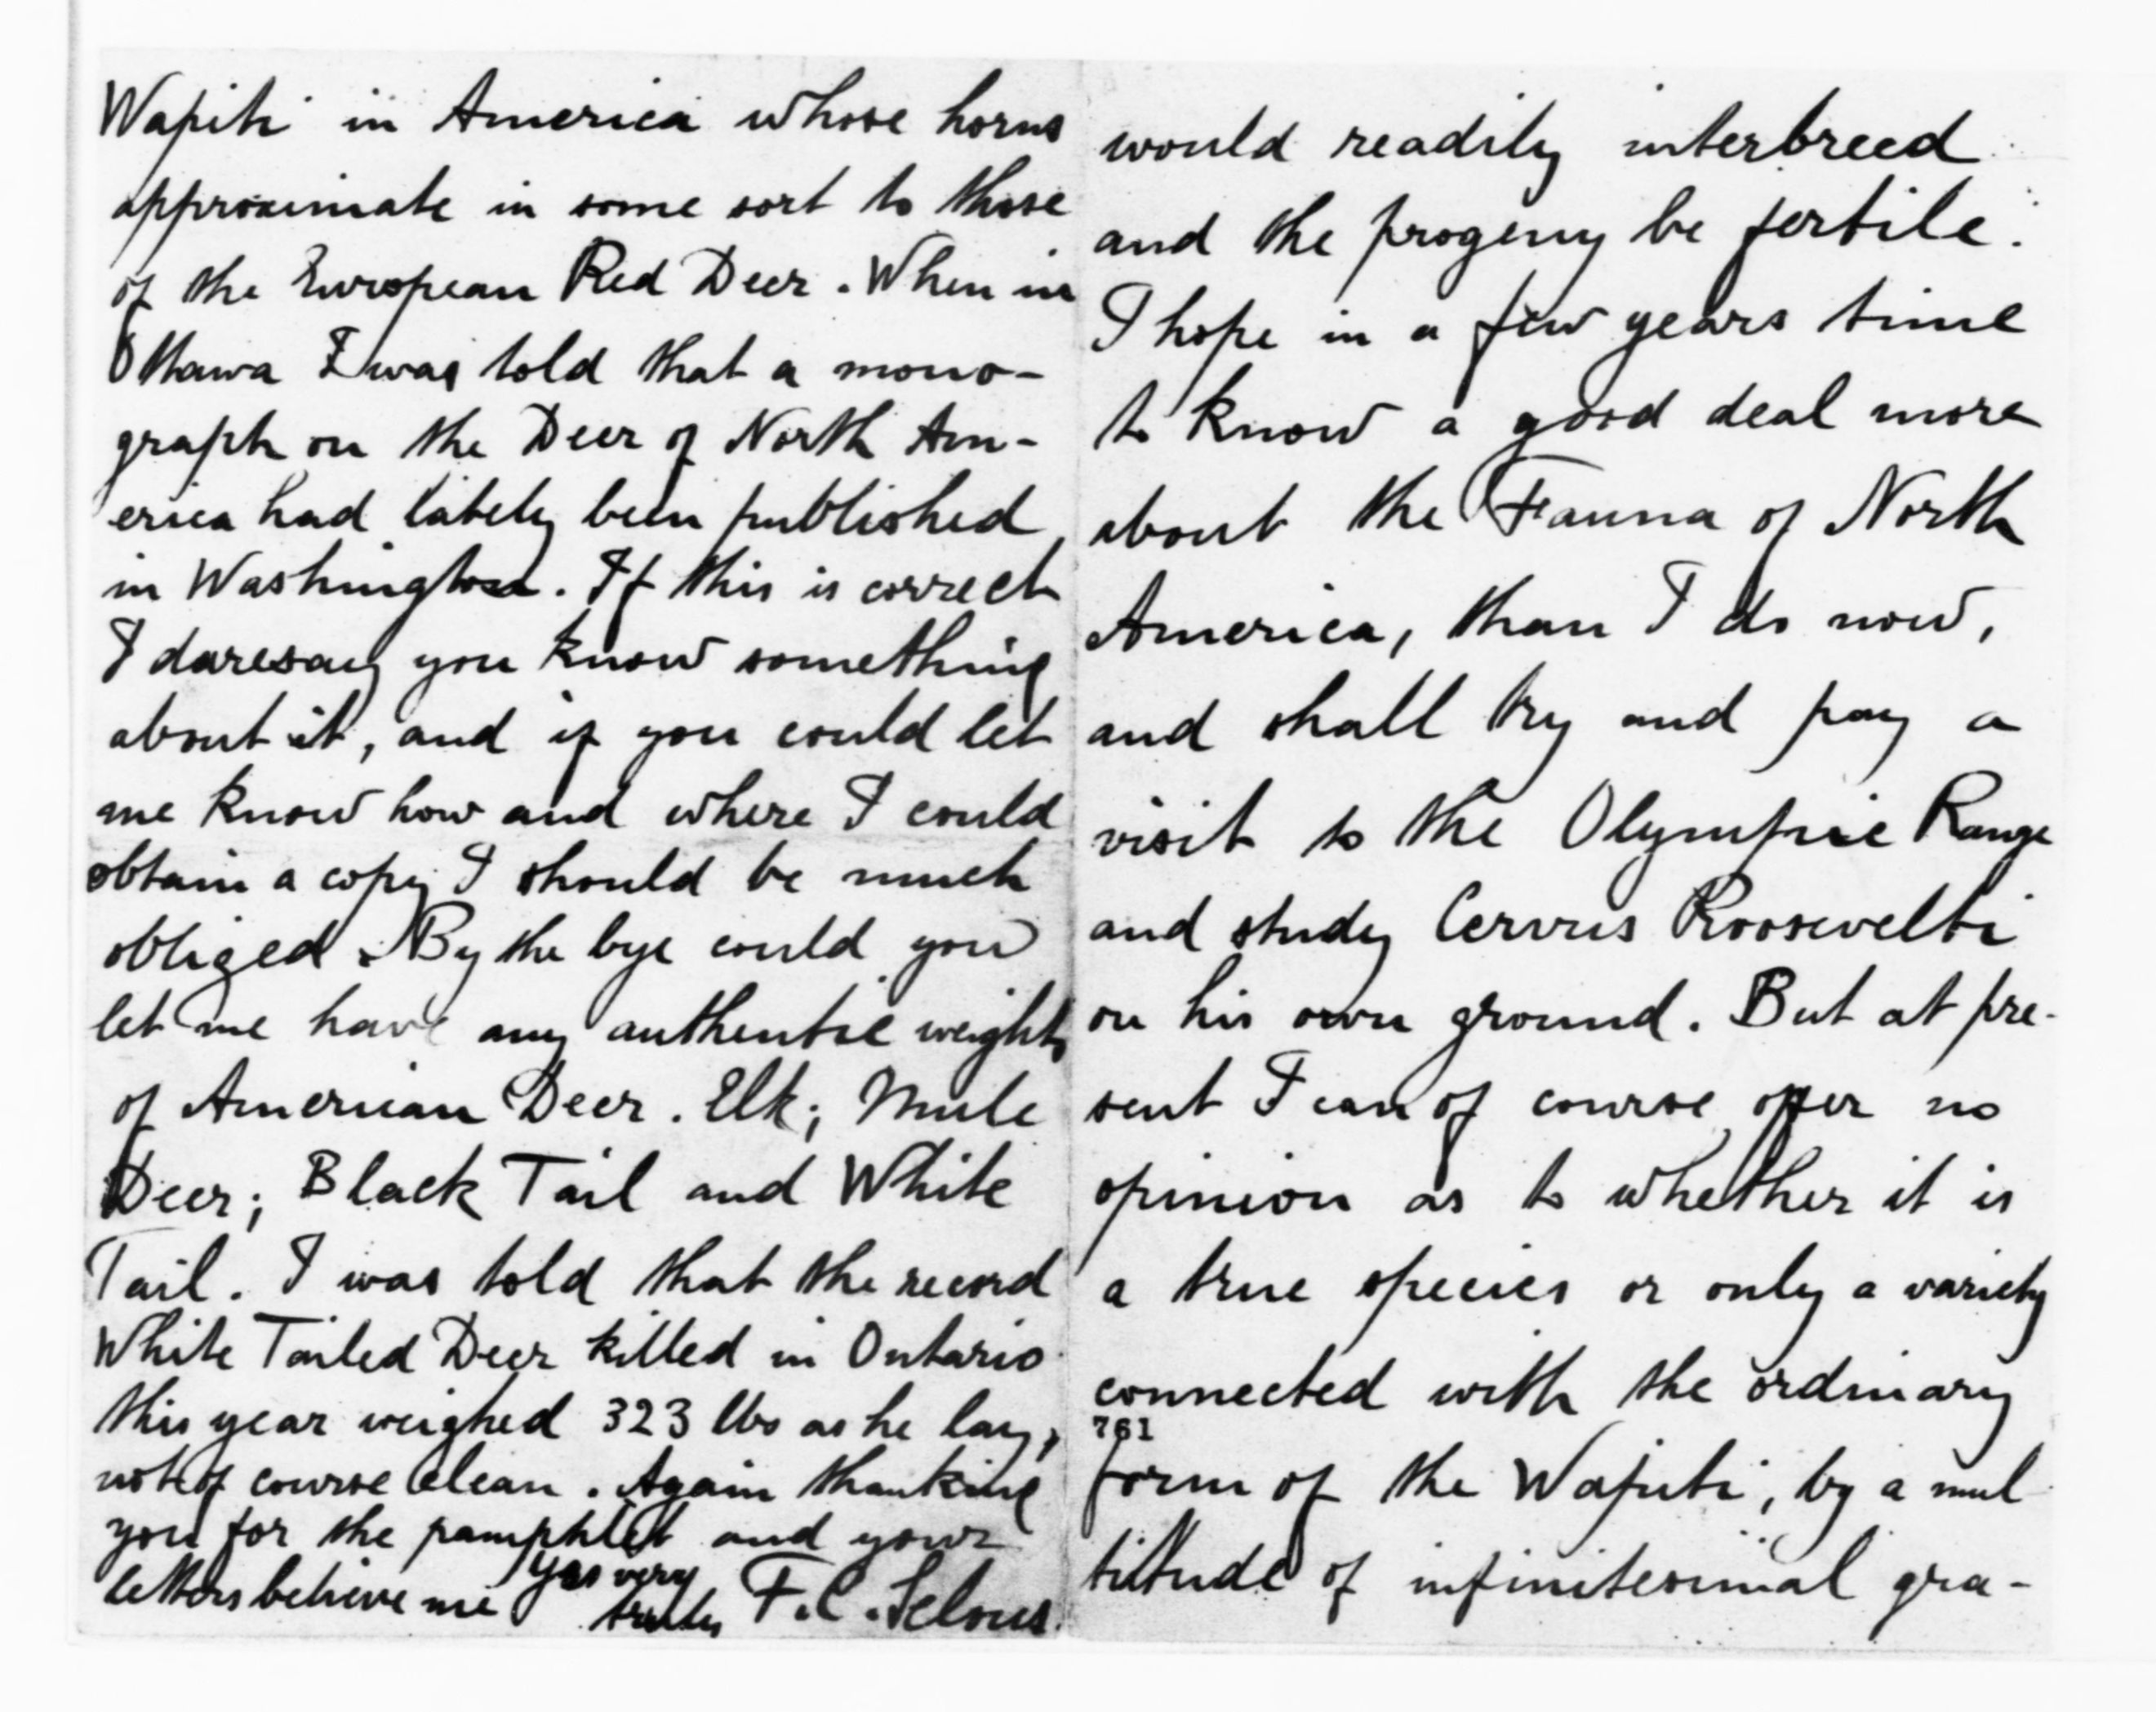 Wapiti in America whose horns
approximate in some sort to those
of the European Red Deer. When in
Ottawa I was told that a mono-
graph on the Deer of North Am-
erica had lately been published
in Washington. If this is correct
I daresay you know something
about it, and if you could let
me know how and where I could
obtain a copy I should be much
obliged. By the bye could you
let me have any authentic weights
of American Deer. Elk; Mule
Deer; Black Tail and White
Tail. I was told that the record
White Tailed Deer killed in Ontario
this year weighed 323 lbs as he lay,
not of course clean. Again thanking
you for the pamphlet and your
letters believe me Yrs very
truly F.C. Selous.
would readily interbreed
and the progeny be fertile.
I hope in a few years time
to know a good deal more
about the Fauna of North
America, than I do now,
and shall try and pay a
visit to the Olympic Range
and study Cervus Roosevelti
on his own ground. But at pre-
sent I can of course offer no
opinion as to whether it is
a true species or only a variety
connected with the ordinary
761
form of the Wapiti, by a mul
titude of infinitesimal gra-